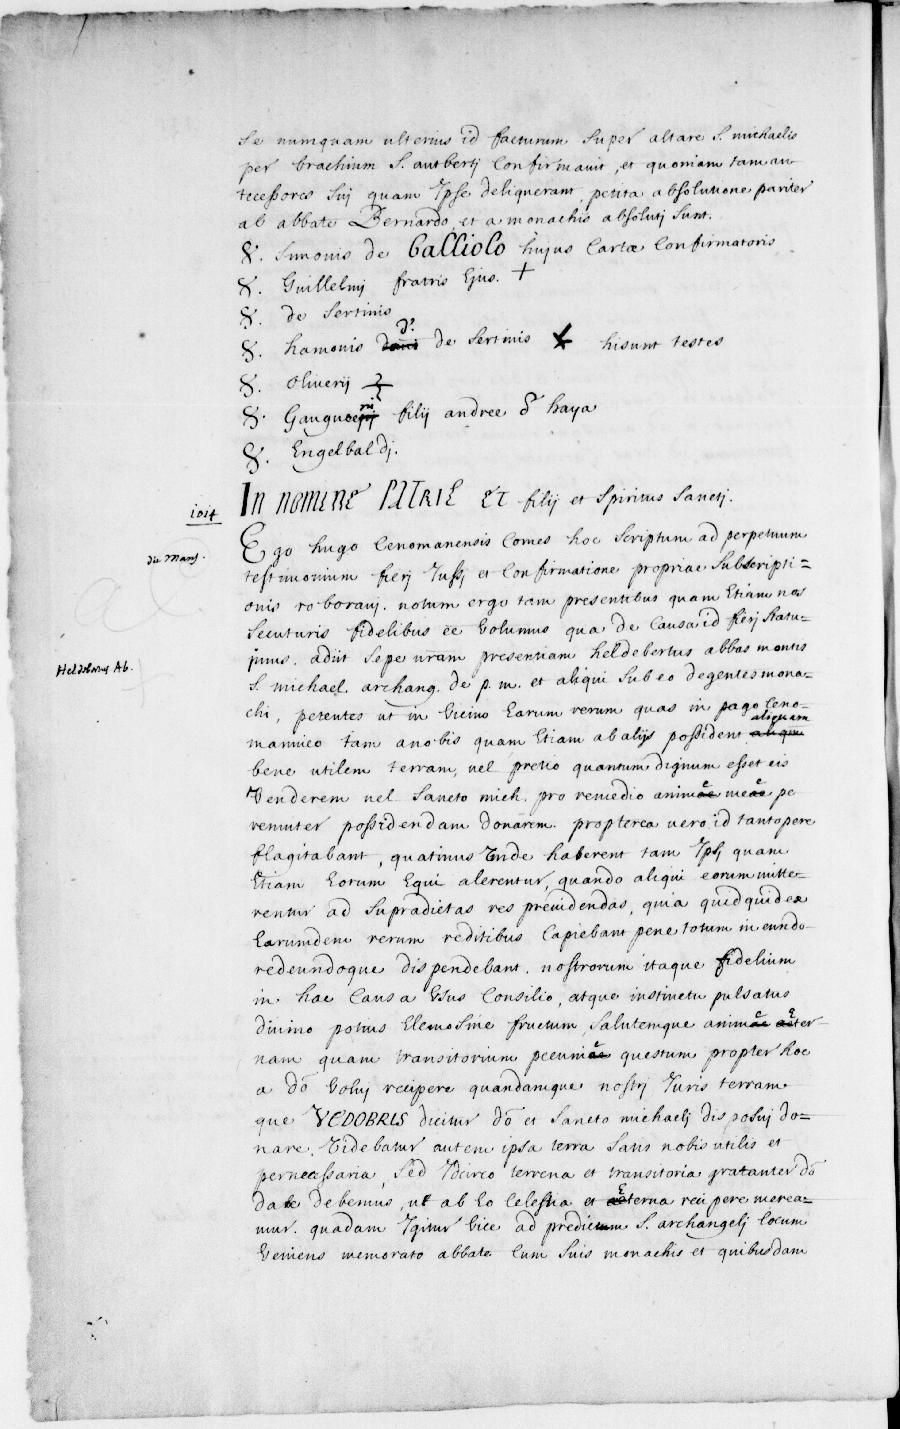 se nunquam ulterius id facturum super altare S. michaelis
per brachium S. autbertj Confirmauit, et quoniam tam an
tecessores suj quam Ipse deliquerant, petita absolutione pariter
ab abbate Bernardo et a monachis absolutj sunt.
&. Simonis de Galliolo hujus Cartæ Confirmatoris
&. Guillelmj fratris Ejus. +
&. de Sertinis
&. hamonis d'. de Sertinis hi sunt testes
&. oliverij
&. Gauguerii filij andree d haya
&. Engelbaldj.
In nomine PATRIS ET filij et Spiritus Sanctj.
1014
Ego hugo Cenomanensis Comes hoc Scriptum ad perpetuum
du Mans.
testimonium fierj Jussj et Confirmatione propriae Subscripti=
onis roborauj. notum ergo tam presentibus quam Etiam nos
Secuturis fidelibus ēe Volumus qua de Causa id fierj Statu=
jmus. adiit Sepe nram presentiam heldebertus abbas montis
Heldebertus Ab.
S. michael. archang. de p. m. et aliqui Sub eo degentes mona=
chi, petentes ut in Vicino Earum rerum quas in pago Ceno=
mannico tam a nobis quam Etiam ab alijs possident aliquam
bene utilem terram, uel pretio quantum dignum esset eis
Venderem uel Sancto mich. pro remedio anime mee pe
renniter possidendam donarem. propterea uero id tantopere
flagitabant, quatinus Inde haberent tam Ipsj quam
Etiam Eorum Equi alerentur, quando aliqui eorum mitte=
rentur ad Supradictas res preuidendas, quia quidquid ex
Earumdem rerum reditibus Capiebant pene totum in eundo
redeundoque dispendebant. nostrorum itaque fidelium
in hac Causa Usus Consilio, atque instinctu pulsatus
diuino potius Elemosine fructum, Salutemque anime Eter
nam quam transitorium pecunie questum propter hoc
a dō Voluj recipere quandamque nostrj Juris terram
que VEDOBRIS dicitur dō et Sancto michaelj disposuj do=
nare. Videbatur autem ipsa terra Satis nobis utilis et
pernecessaria, Sed Idcirco terrena et transitoria gratanter dō
dare debemus, ut ab Eo Celestia et Eterna recipere merea=
mur. quadam Igitur Vice ad predictum S. archangelj locum
Veniens memorato abbate Cum Suis monachis et quibusdam